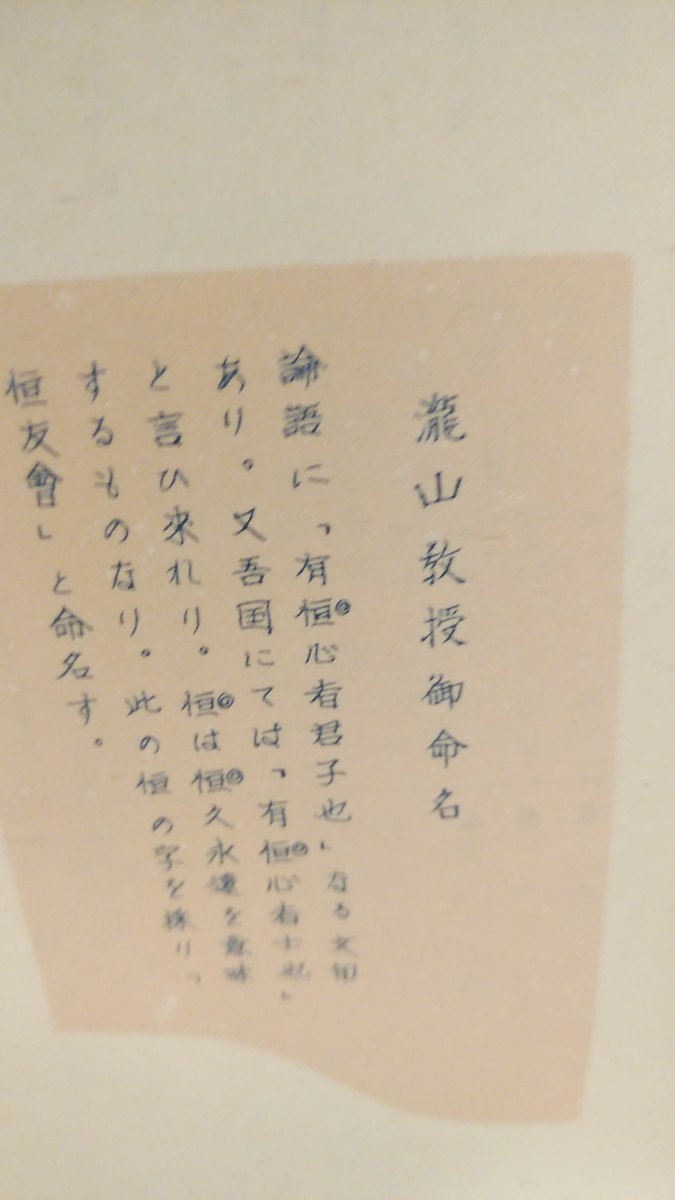 瀧山教授御命名
論語に「有恒心者君子也」なる文句
あり。又吾国にては「有恒心者士也」
と言ひ來れり。恒は恒久永遠を意味
するものなり。此の恒の字を採り「
恒友會」と命名す。